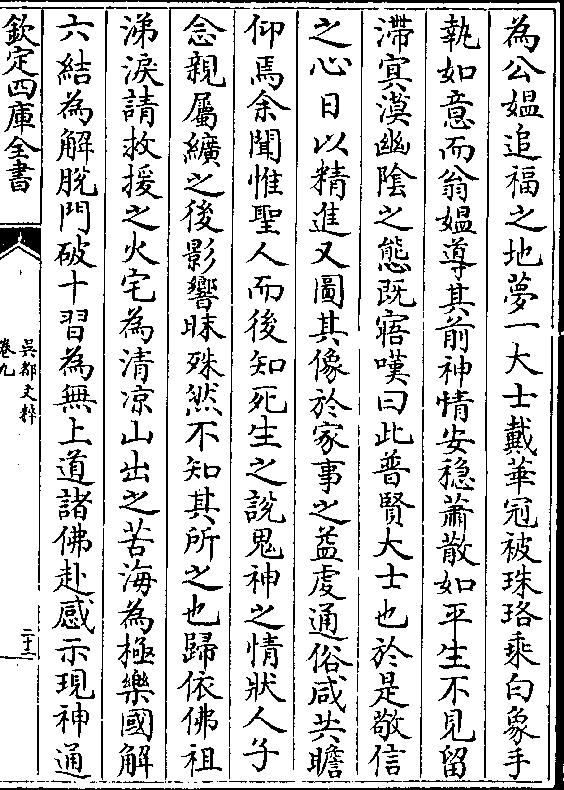 為公媼追福之地夢一大士戴華冠被珠珞乘白象手
執如意而翁媼導其前神情安穩蕭散如平生不見留
滯㝠漠幽陰之態既寤嘆曰此普賢大士也於是敬信
之心日以精進又圖其像於家事之益䖍通俗咸共瞻
仰焉余聞惟聖人而後知死生之說鬼神之情狀人子
念親屬纊之後影響昧殊然不知其所之也歸依佛祖
涕淚請救援之火宅為清凉山出之苦海為極樂國解
六結為解脫門破十習為無上道諸佛赴感示現神通
欽定四庫全書
吳都文粹
卷九
二十三